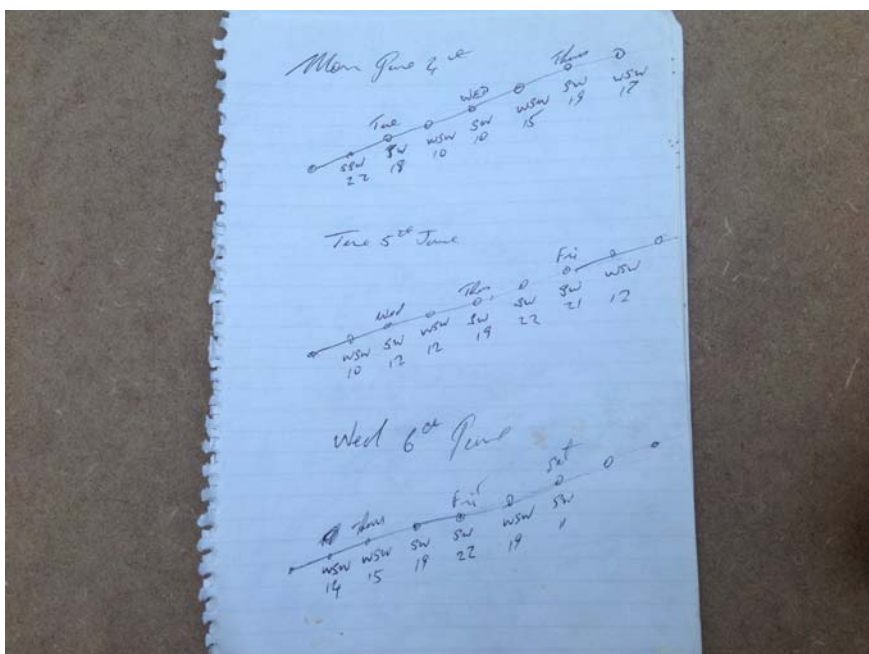 Mon June 4th
Tue WED Thurs
SSW SW WSW SW WSW SW WSW
22 18 10 10 15 19 17
Tue 5th June
Wed Thurs Fri
WSW SW WSW SW SW SW WSW
10 12 12 19 22 21 12
Wed 6th June
Thurs Fri Sat
WSW WSW SW SW WSW SW
14 15 19 22 19 11